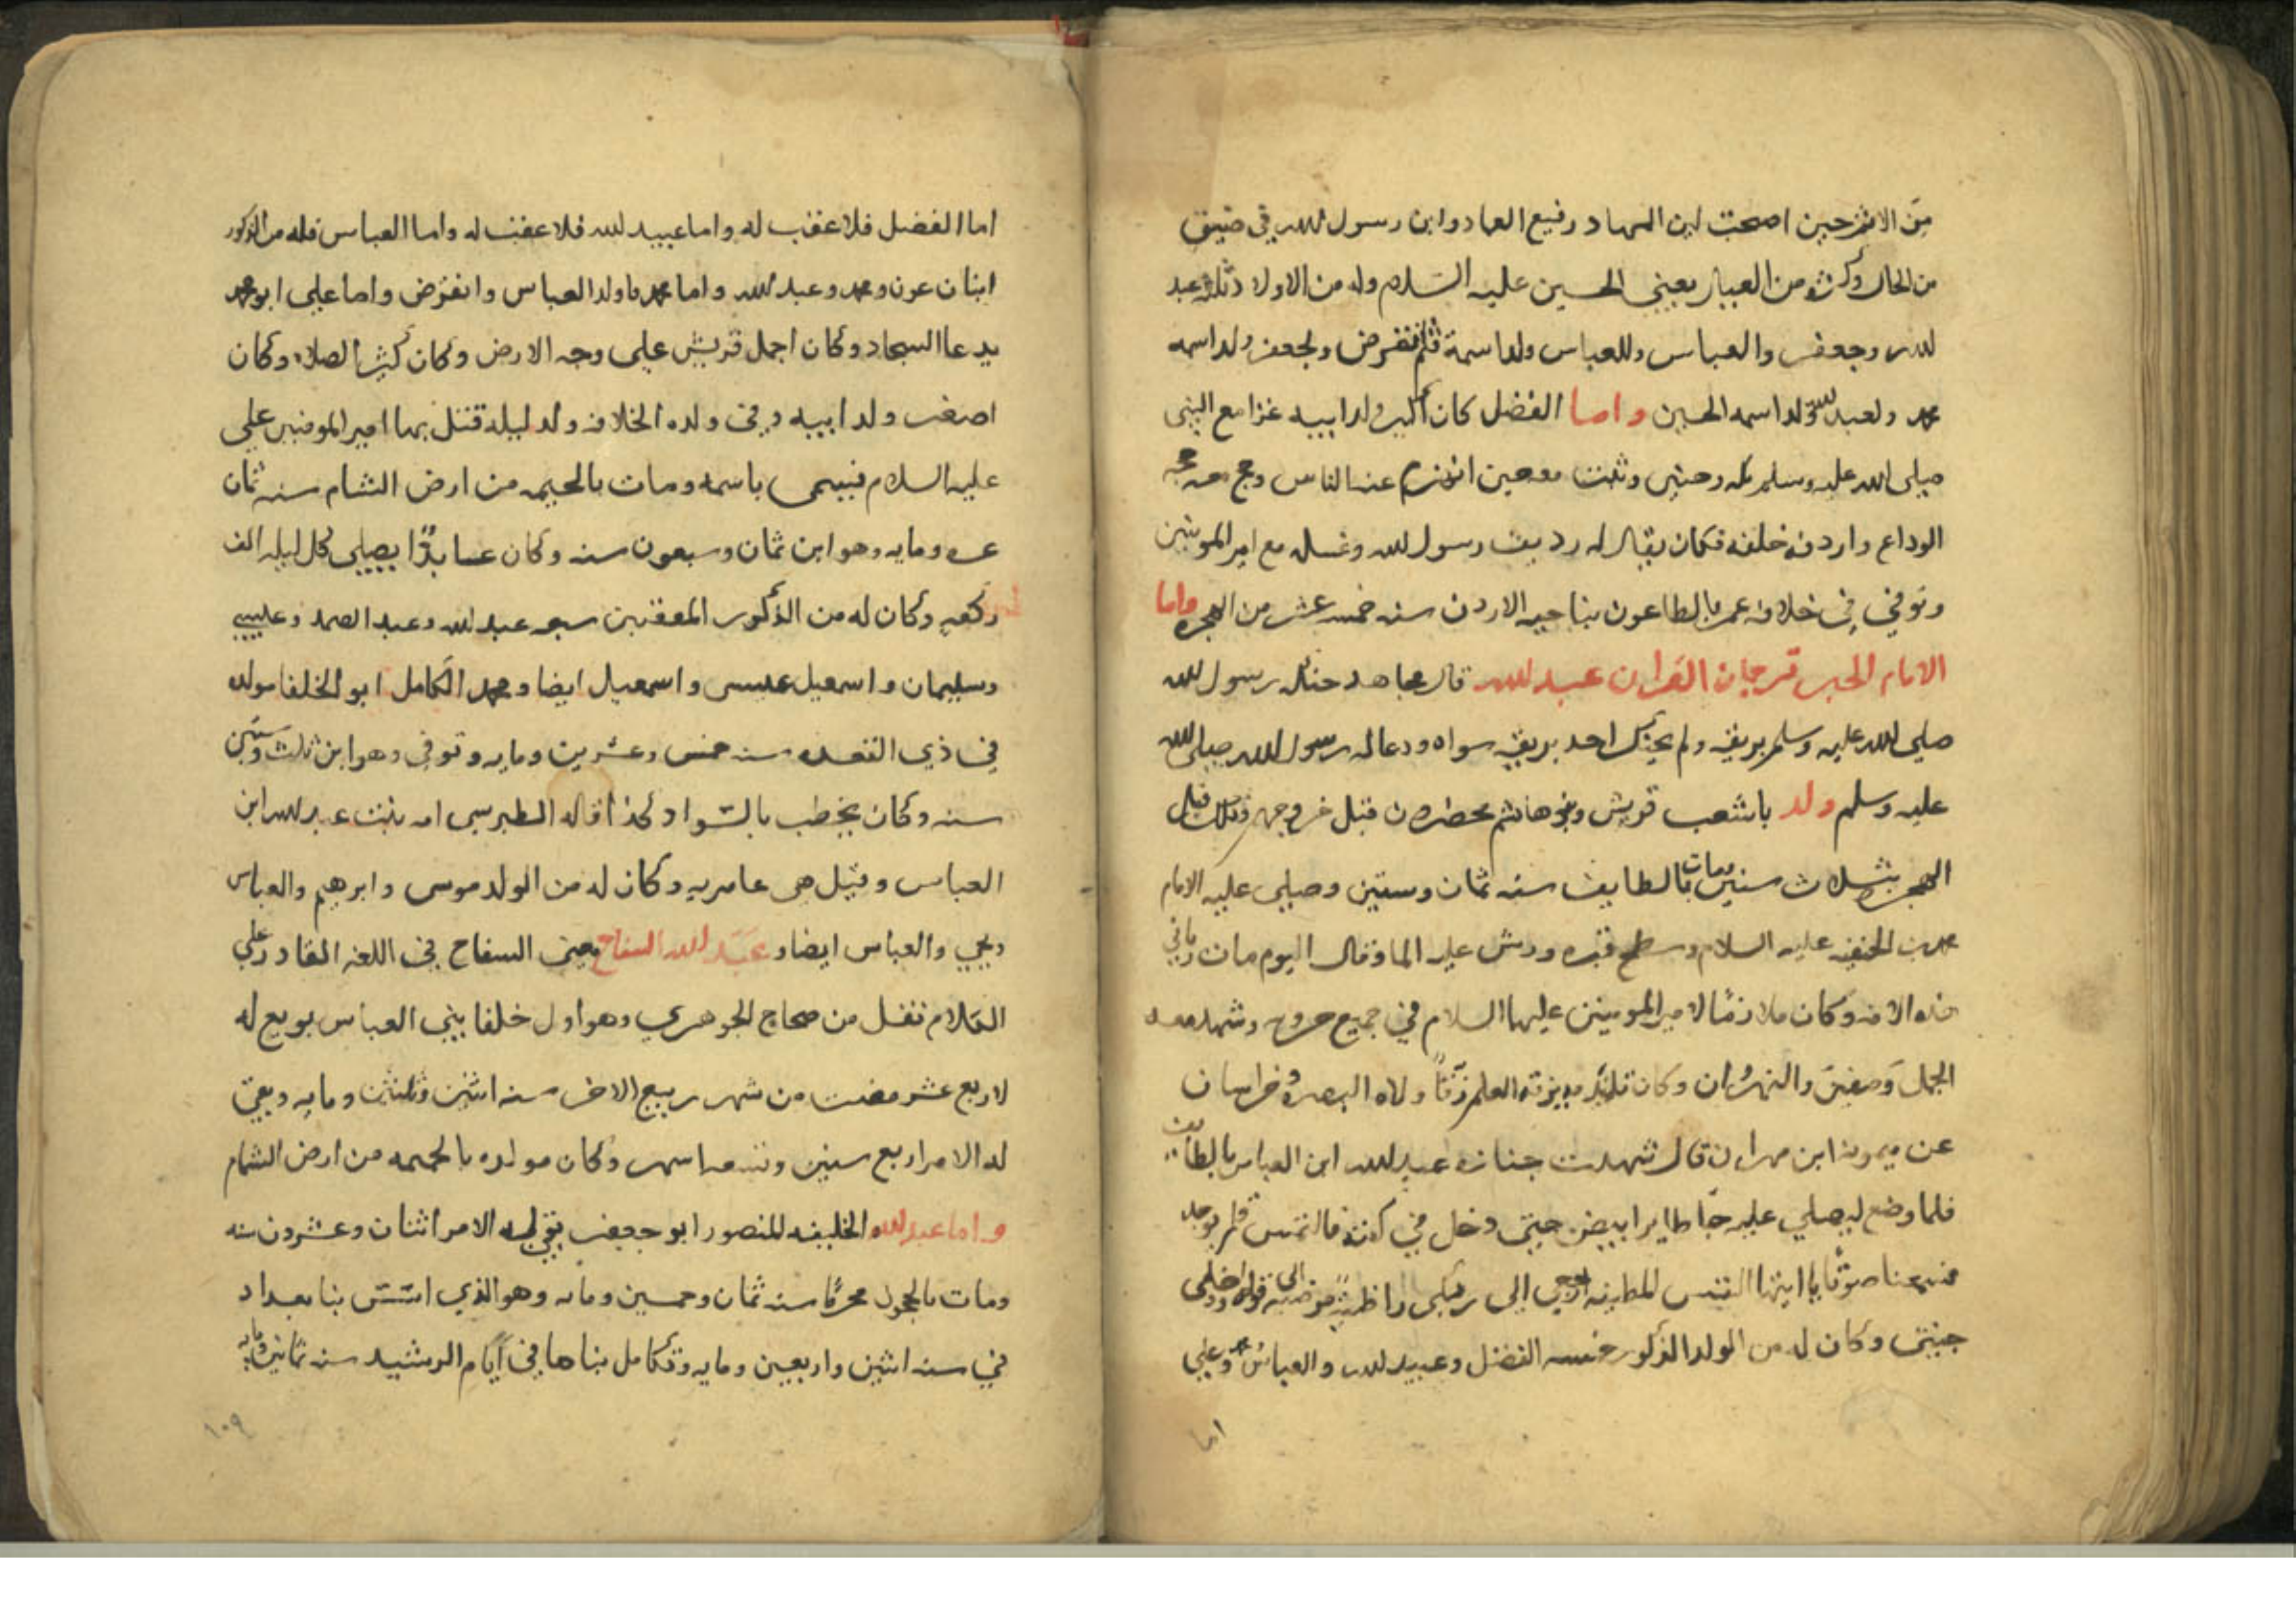 من الاثر حين اصحت ابن المهاد رفيع العماد وابن رسول الله في ضيق
من الحال وكرثه من العيال يعني الحسين عليه السلام وله من الاولاد ثلثه عبد
لله وجعفر والعباس وللعباس ولد اسمه قثم انقرض ولجعفر ولد اسمه
محمد ولعبد لله ولد اسمه الحسين واما الفضل كان اكبر ولد ابيه غزا مع النبي
صلى الله عليه وسلم مكه وحنين وثبت معه حين انهزم عنه الناس وحج معه حجه
الوداع واردفه خلفه فكان يقال له رديف رسول لله وغسله مع امير المومنين
وتوفي في خلافه عمر بالطاعون بناحيه الاردن سنه خمسه عشر من الهجره واما
الامام الحبر ترجمان القران عبد لله قال مجاهد حنكه رسول لله
صلى لله عليه وسلم بريقه ولم يحنك احد بريقه سواه ودعا له رسول لله صلى لله
عليه وسلم ولد بالشعب قريش وبنوهاشم محصرون قبل خروجهم وذلك قبل
الهجره بثلاث سنين ومات بالطايف سنه ثمان وستين وصلى عليه الامام
محمد بن الحنفيه عليه السلام وسطح قبره ورش عليه الما وقال اليوم مات رباني
هذه الامه وكان ملازمًا لامير المومنين عليهما السلام في جميع حروبه وشهد معه
الجمل وصفين والنهروان وكان تلميذه يزقه العلم زقًا ولاه البصره وخراسان
عن ميمون ابن مهران قال شهدت جنازه عبد لله ابن العباس بالطايف
فلما وضع ليصلي عليه جا طايرا ابيض حتى دخل في كفنه فالتمس فلم يوجد
فسمعنا صوتًا يا ايتها النفس المطينه ارجعي الى ربكى راضيةً مرضيه الى قوله وادخلى
جنتى وكان له من الولد الذكور خمسه الفضل وعبيد لله والعباس ومحمد وعلي
اما
اما الفضل فلا عقب له واما عبيد لله فلا عقب له واما العباس فله من الذكور
ابنان عون ومحمد وعبد لله واما محمد فاولد العباس وانقرض واما علي ابو محمد
يدعا السجاد وكان اجمل قريش على وجه الارض وكان كثير الصلاه وكان
اصغر ولد ابيه وفى ولده الخلافه ولد ليله قتل بها امير المومنين علي
عليه السلام فسمى باسمه ومات بالحميمه من ارض الشام سنه ثمان
عشره ومايه وهو ابن ثمان وسبعون سنه وكان عابدًا يصلى كل ليله الف
ركعه وكان له من الذكور المعقبين سبعه عبد لله وعبد الصمد وعلي
وسليمان واسمعيل عيسى واسمعيل ايضا ومحمد الكامل ابو الخلفا مولده
في ذي القعده سنه خمس وعشرين ومايه وتوفى وهو ابن ثلث وستين
سنه وكان يخضب بالسواد كذا قاله الطبرسى امه بنت عبد لله ابن
العباس وقيل هى عامريه وكان له من الولد موسى وابرهيم والعباس
ويحيي والعباس ايضا وعبد لله السفاح يعنى السفاح فى اللغه القادر على
الكلام نقل من صحاح الجوهري وهو اول خلفا بني العباس بويع له
لاربع عشر مضت من شهر ربيع الاخر سنه اثنين وثلثين ومايه وبقى
له الامر اربع سنين وتسعه اشهر وكان مولده بالحميمه من ارض الشام
واما عبد لله الخليفه المنصور ابو جعفر بقي له الامر اثنان وعشرون سنه
ومات بالحجون محرمًا سنه ثمان وخمسين ومايه وهو الذي اسس بنا بغداد
في سنه اثنين واربعين ومايه وتكامل بناها فى ايام الرشيد سنه ثمانين ومايه
١٠٩